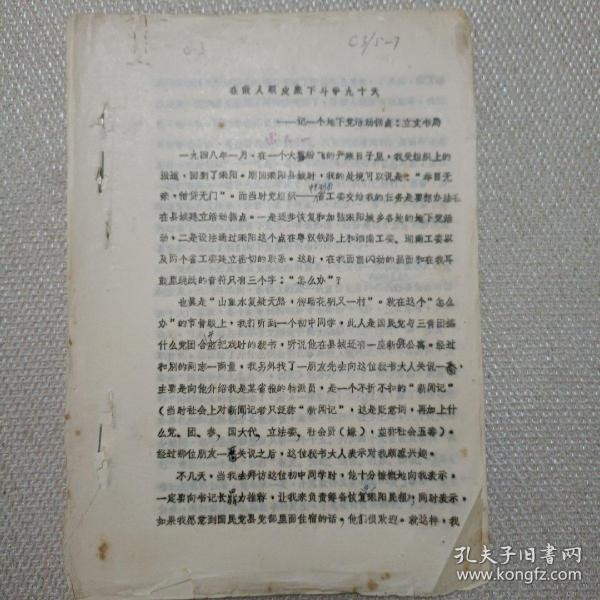 C3/5-7
在敌人眼皮底下斗争九十天
——记一个地下党活动据点:立文书局
一九四八年一月,在一个大雪纷飞的严寒日子里,我受组织上的
派遣,回到了耒阳。刚回耒阳县城时,我的处境可以说是:“举目无
亲,借贷无门”。而当时党组织——省工委交给我的任务是要想办法
在县城建立活动据点。一是逐步恢复和加强耒阳城乡各地的地下党活
动,二是设法通过耒阳这个点在粤汉铁路上和湘南工委、湖南工委以
及两个省工委建立密切的联系。这时,在我面前闪动的画面和在我耳
鼓里跳跃的音符只有三个字:“怎么办”?
也真是“山重水复疑无路,柳暗花明又一村”。就在这个“怎么
办”的节骨眼上,我打听到一个初中同学,此人是国民党与三青团搞
什么党团合并把戏时的秘书,听说他在县城还有一座新公寓。经过
和别的同志一商量,我另外找了一朋友先去向这位秘书大人关说一番,
主要是向他介绍我是某省报的特派员,是一个不折不扣的“新闻记”
(当时社会上对新闻记者只泛称“新闻记”,这是贬意词,再加上什
么党、团、参,国大代、立法委,社会贤(嫌),並称社会五毒)。
经过那位朋友一番关说之后,这位秘书大人表示对我颇感兴趣。
不几天,当我去拜访这位初中同学时,他十分慷慨地向我表示,
一定要向书记长鼎力推荐,让我来负责筹备恢复耒阳民报,同时表示,
如果我愿意到国民党县党部里面住宿的话,他们很欢迎。就这样,我
孔夫子旧书网
www.kongfz.com